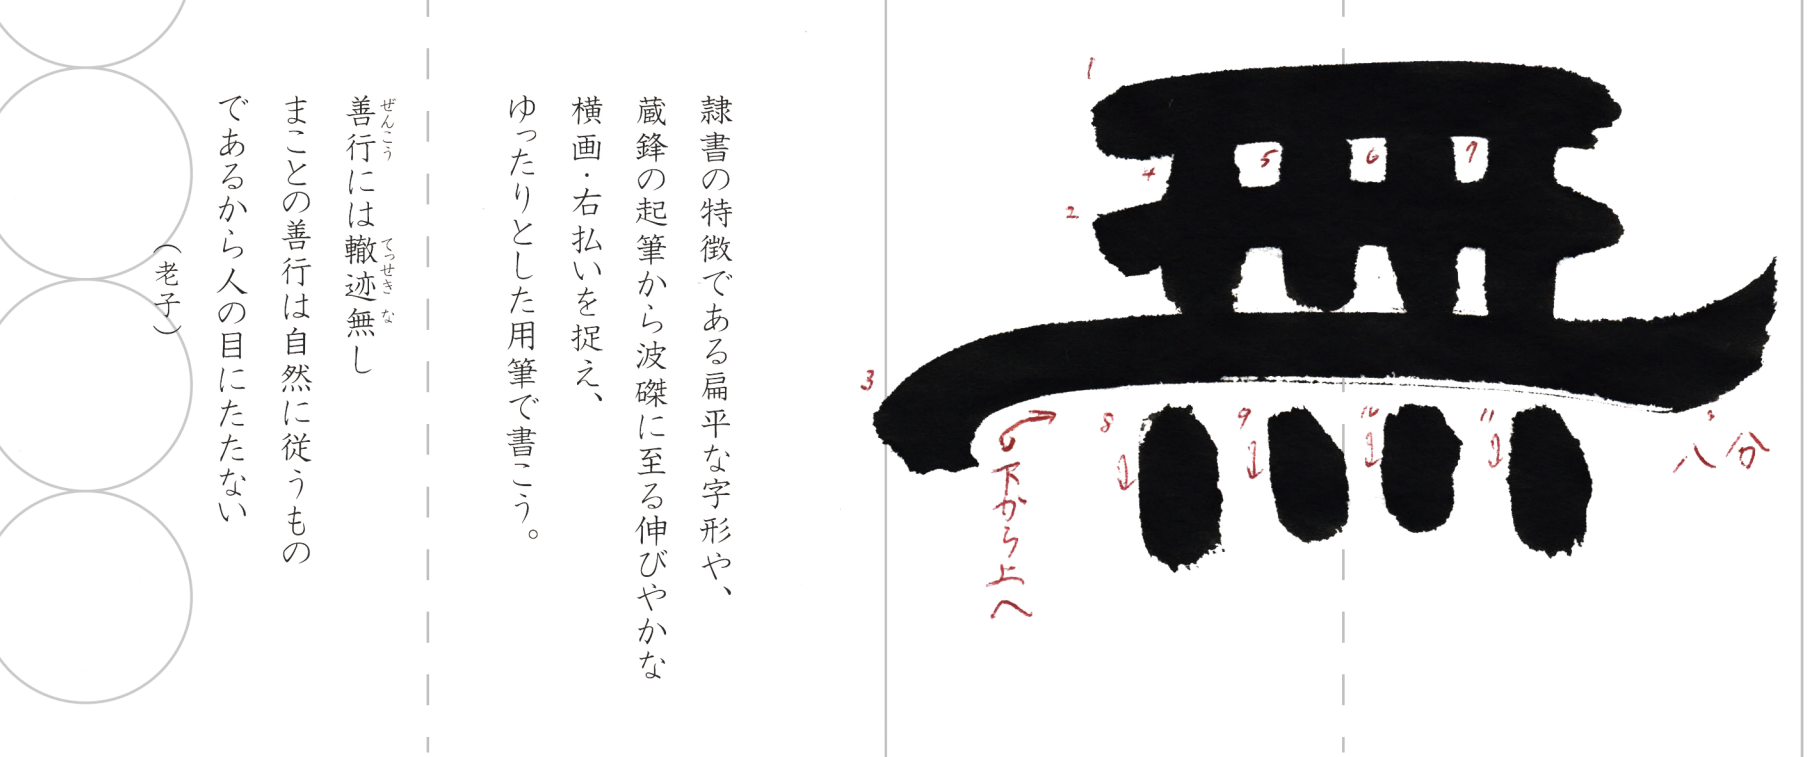 無
1
2
3
4
5
6
7
8
9
10
11
下から上へ
八分
隷書の特徴である扁平な字形や、
蔵鋒の起筆から波磔に至る伸びやかな
横画・右払いを捉え、
ゆったりとした用筆で書こう。
ぜんこう てっせき な
善行には轍迹無し
まことの善行は自然に従うもの
であるから人の目にたたない
（老子）